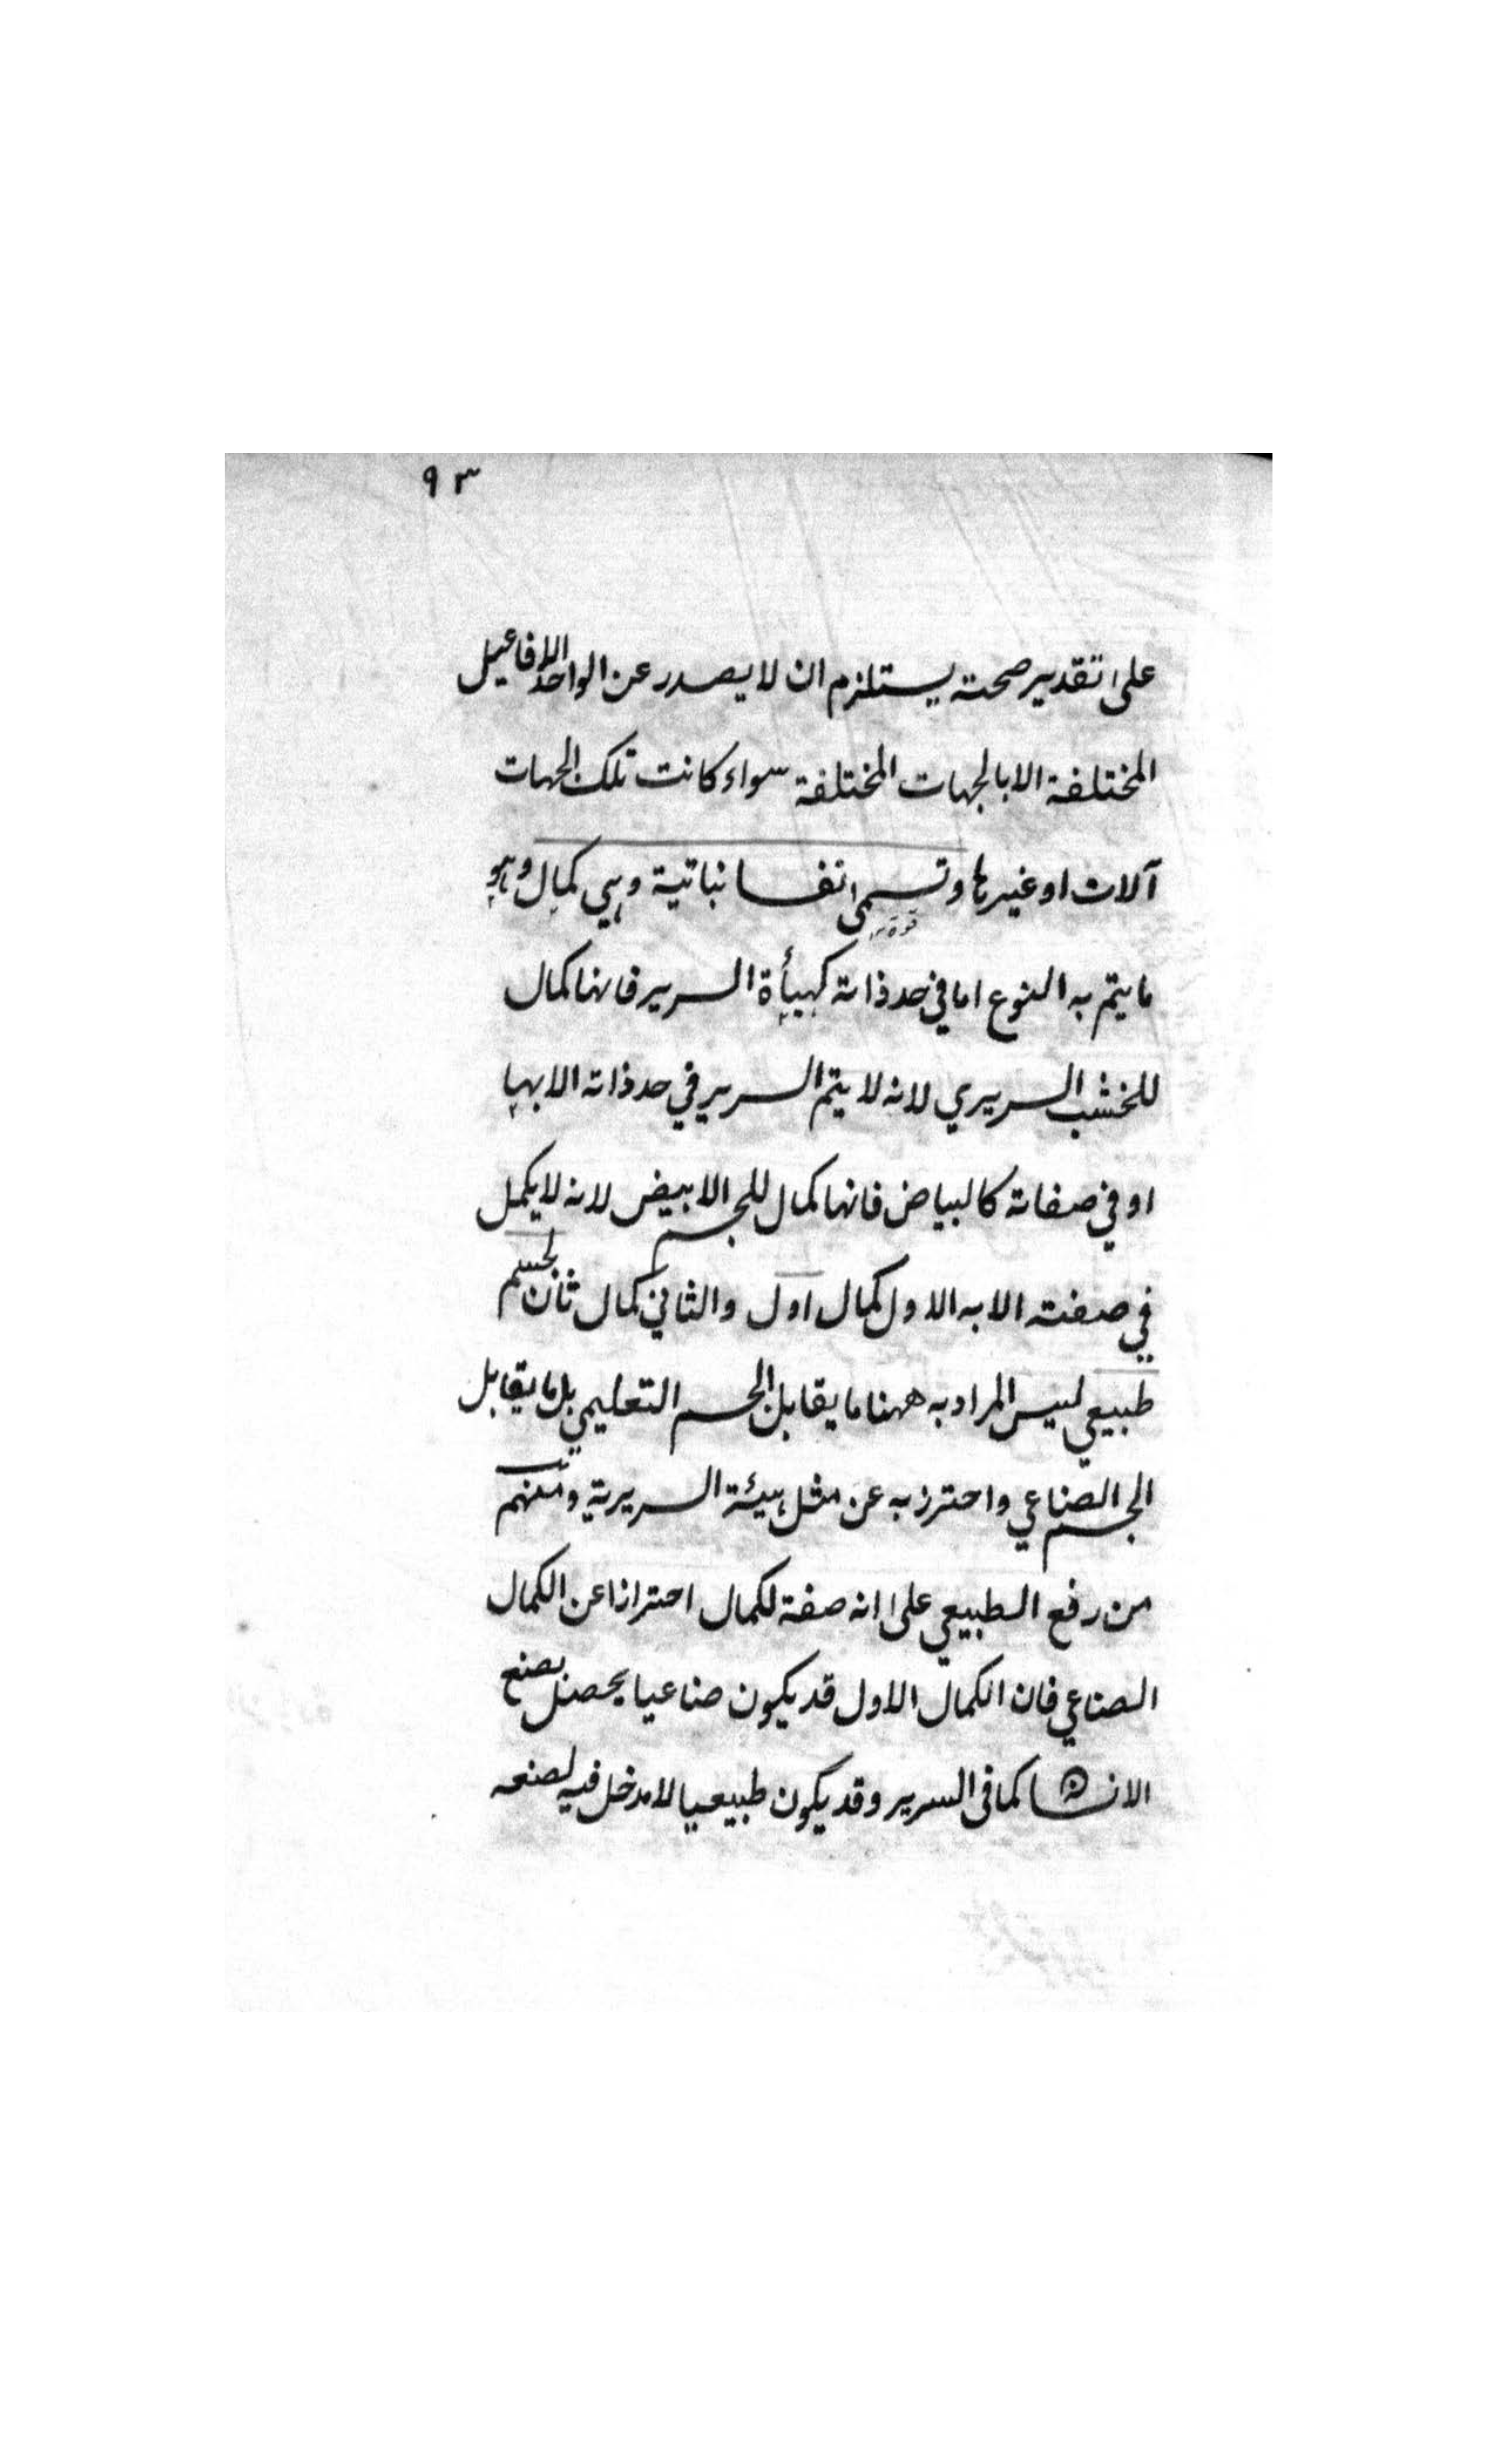 ٩٣
على تقدير صحته يستلزم ان لا يصدر عن الواحد الافاعيل
المختلفة الا بالجهات المختلفة سواء كانت تلك الجهات
آلات او غيرها وتسمى نفسا نباتية وهي كمال وهو
ما يتم به النوع اما في حد ذاته كهيأة السرير فانها كمال
للخشب السريري لانه لا يتم السرير في حد ذاته الا بها
او في صفاته كالبياض فانها كمال للجسم الابيض لانه لا يكمل
في صفته الا به الاول كمال اول والثاني كمال ثان لجسم
طبيعي ليس المراد به ههنا ما يقابل الجسم التعليمي بل ما يقابل
الجسم الصناعي واحترز به عن مثل هيئة السريرية ومنهم
من رفع الطبيعي على انه صفة لكمال احترازا عن الكمال
الصناعي فان الكمال الاول قد يكون صناعيا يحصل بصنع
الانسان كما في السرير وقد يكون طبيعيا لا مدخل فيه لصنعه